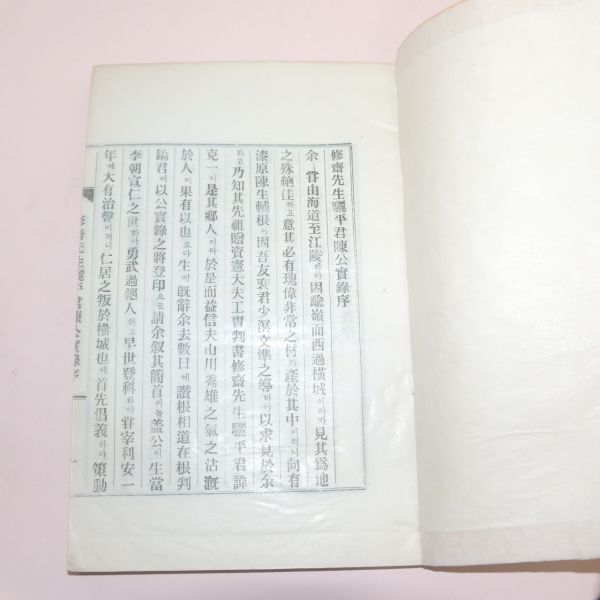 修齋先生驪平君陳公實錄序
余ㅣ嘗由海道至江陵하야因踰嶺而西過橫城이라가見其爲地
之殊絶佳하고意其必有瑰偉非常之材ㅣ產於其中이러니向有
漆原陳生輔根이因吾友裴君少溟文準之導하야以求見於余
하고乃知其先祖贈資憲大夫工曹判書修齋先生驪平君諱
克一이是其鄕人이라於是而益信夫山川秀雄之氣之沾漑
於人이果有以也로다生이旣辭余去數日에讚根相道在根判
鎬君이以公實錄之將登印으로請余叙其簡首어늘盖公이生當
李朝宣仁之世하야勇武過絶人하고早世登科하야甞宰利安一
年에大有治聲이러니仁居之叛於橫城也에首先倡義하야策動
修齋先生驪平君陳公實錄序
一